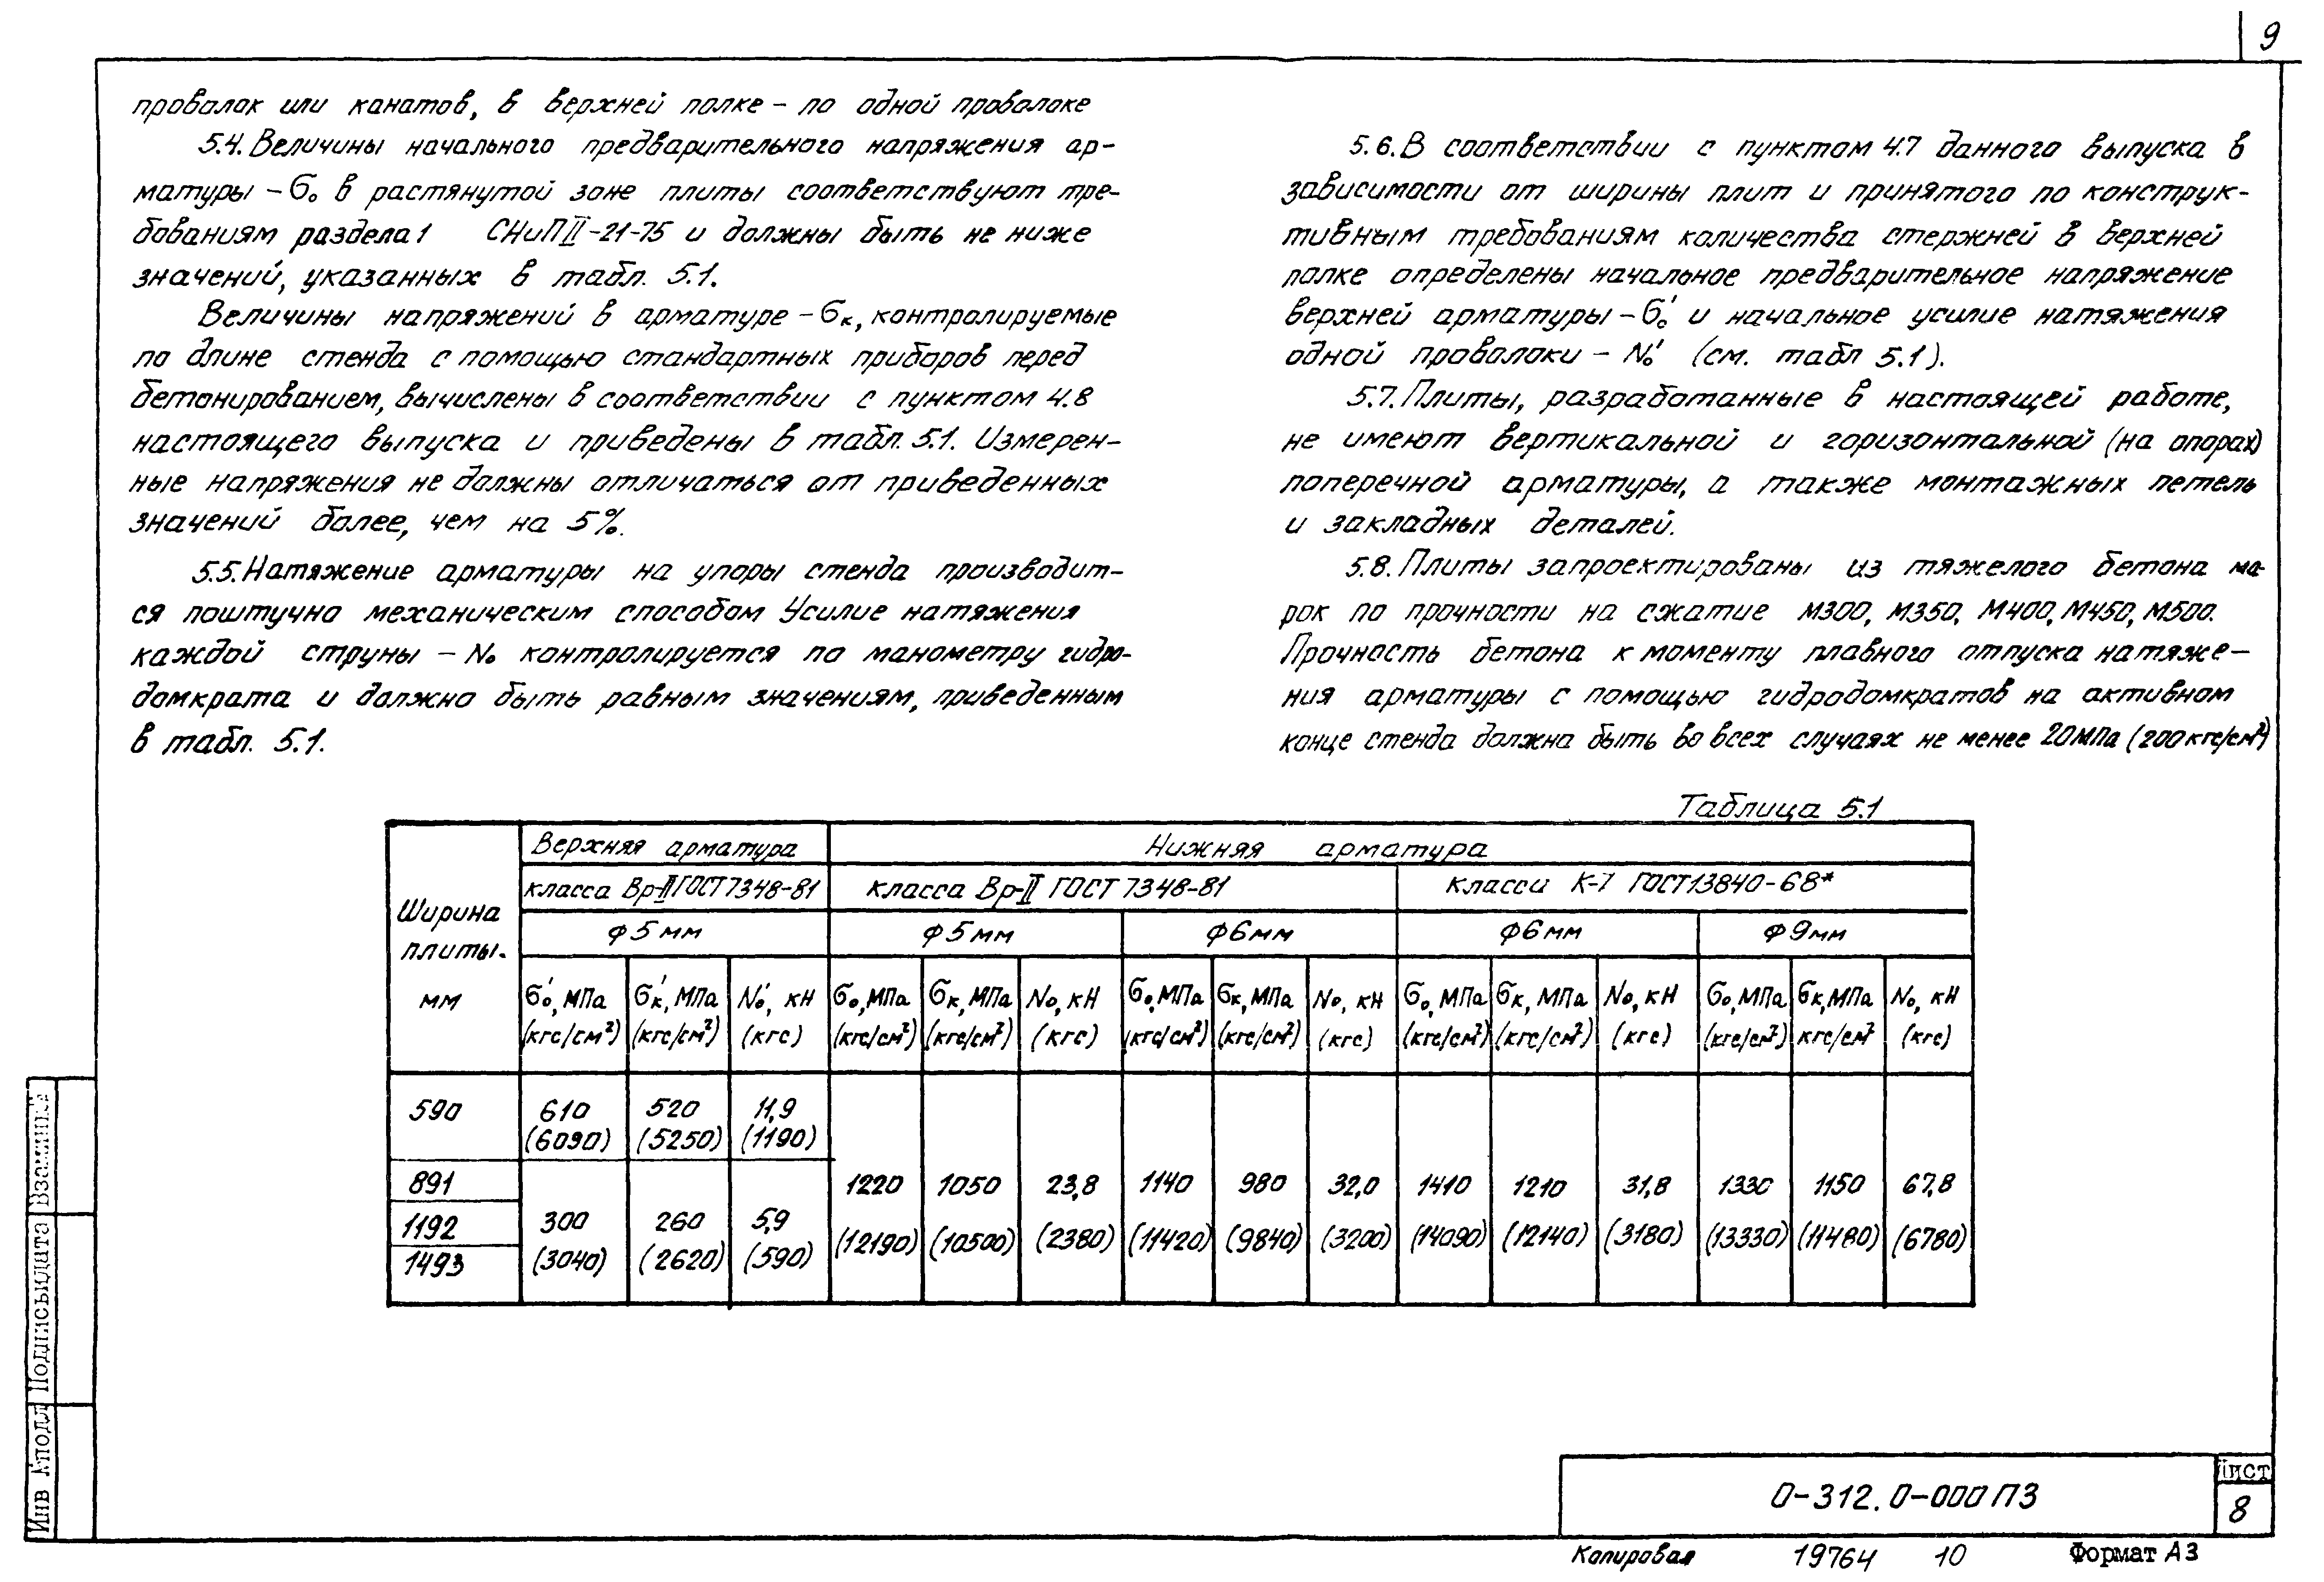 9
проволок или канатов, в верхней полке – по одной проволоке
5.4. Величины начального предварительного напряжения ар-
матуры – σ₀ в растянутой зоне плиты соответствуют тре-
бованиям раздела 1 СНиП II-21-75 и должны быть не ниже
значений, указанных в табл. 5.1.
Величины напряжений в арматуре – σк, контролируемые
по длине стенда с помощью стандартных приборов перед
бетонированием, вычислены в соответствии с пунктом 4.8
настоящего выпуска и приведены в табл. 5.1. Измерен-
ные напряжения не должны отличаться от приведенных
значений более, чем на 5%.
5.5. Натяжение арматуры на упоры стенда производит-
ся поштучно механическим способом Усилие натяжения
каждой струны – N₀ контролируется по манометру гидро-
домкрата и должно быть равным значениям, приведенным
в табл. 5.1.
5.6. В соответствии с пунктом 4.7 данного выпуска в
зависимости от ширины плит и принятого по конструк-
тивным требованиям количества стержней в верхней
полке определены начальное предварительное напряжение
верхней арматуры – σ₀' и начальное усилие натяжения
одной проволоки – N₀' (см. табл 5.1).
5.7. Плиты, разработанные в настоящей работе,
не имеют вертикальной и горизонтальной (на опорах)
поперечной арматуры, а также монтажных петель
и закладных деталей.
5.8. Плиты запроектированы из тяжелого бетона ма-
рок по прочности на сжатие М300, М350, М400, М450, М500.
Прочность бетона к моменту плавного отпуска натяже-
ния арматуры с помощью гидродомкратов на активном
конце стенда должна быть во всех случаях не менее 20МПа (200кгс/см²)
Таблица 5.1
Верхняя арматура Нижняя арматура
класса Вр-II ГОСТ 7348-81 класса Вр-II ГОСТ 7348-81 класса К-7 ГОСТ 13840-68*
Ширина
плиты.
мм
ф5мм ф5мм ф6мм ф6мм ф9мм
σ₀', МПа σк', МПа N₀', кН σ₀, МПа σк, МПа N₀, кН σ₀, МПа σк, МПа N₀, кН σ₀, МПа σк, МПа N₀, кН σ₀, МПа σк, МПа N₀, кН
(кгс/см²) (кгс/см²) (кгс) (кгс/см²) (кгс/см²) (кгс) (кгс/см²) (кгс/см²) (кгс) (кгс/см²) (кгс/см²) (кгс) (кгс/см²) кгс/см² (кгс)
590 610 520 11,9
(6090) (5250) (1190)
891 1220 1050 23,8 1140 980 32,0 1410 1210 31,8 1330 1150 67,8
1192 300 260 5,9
(12190) (10500) (2380) (11420) (9840) (3200) (14090) (12140) (3180) (13330) (11480) (6780)
1493 (3040) (2620) (590)
Инв №подл Подпись и дата Взам инв №
0-312.0-000 ПЗ
Лист
8
Копировал 19764 10 Формат А3